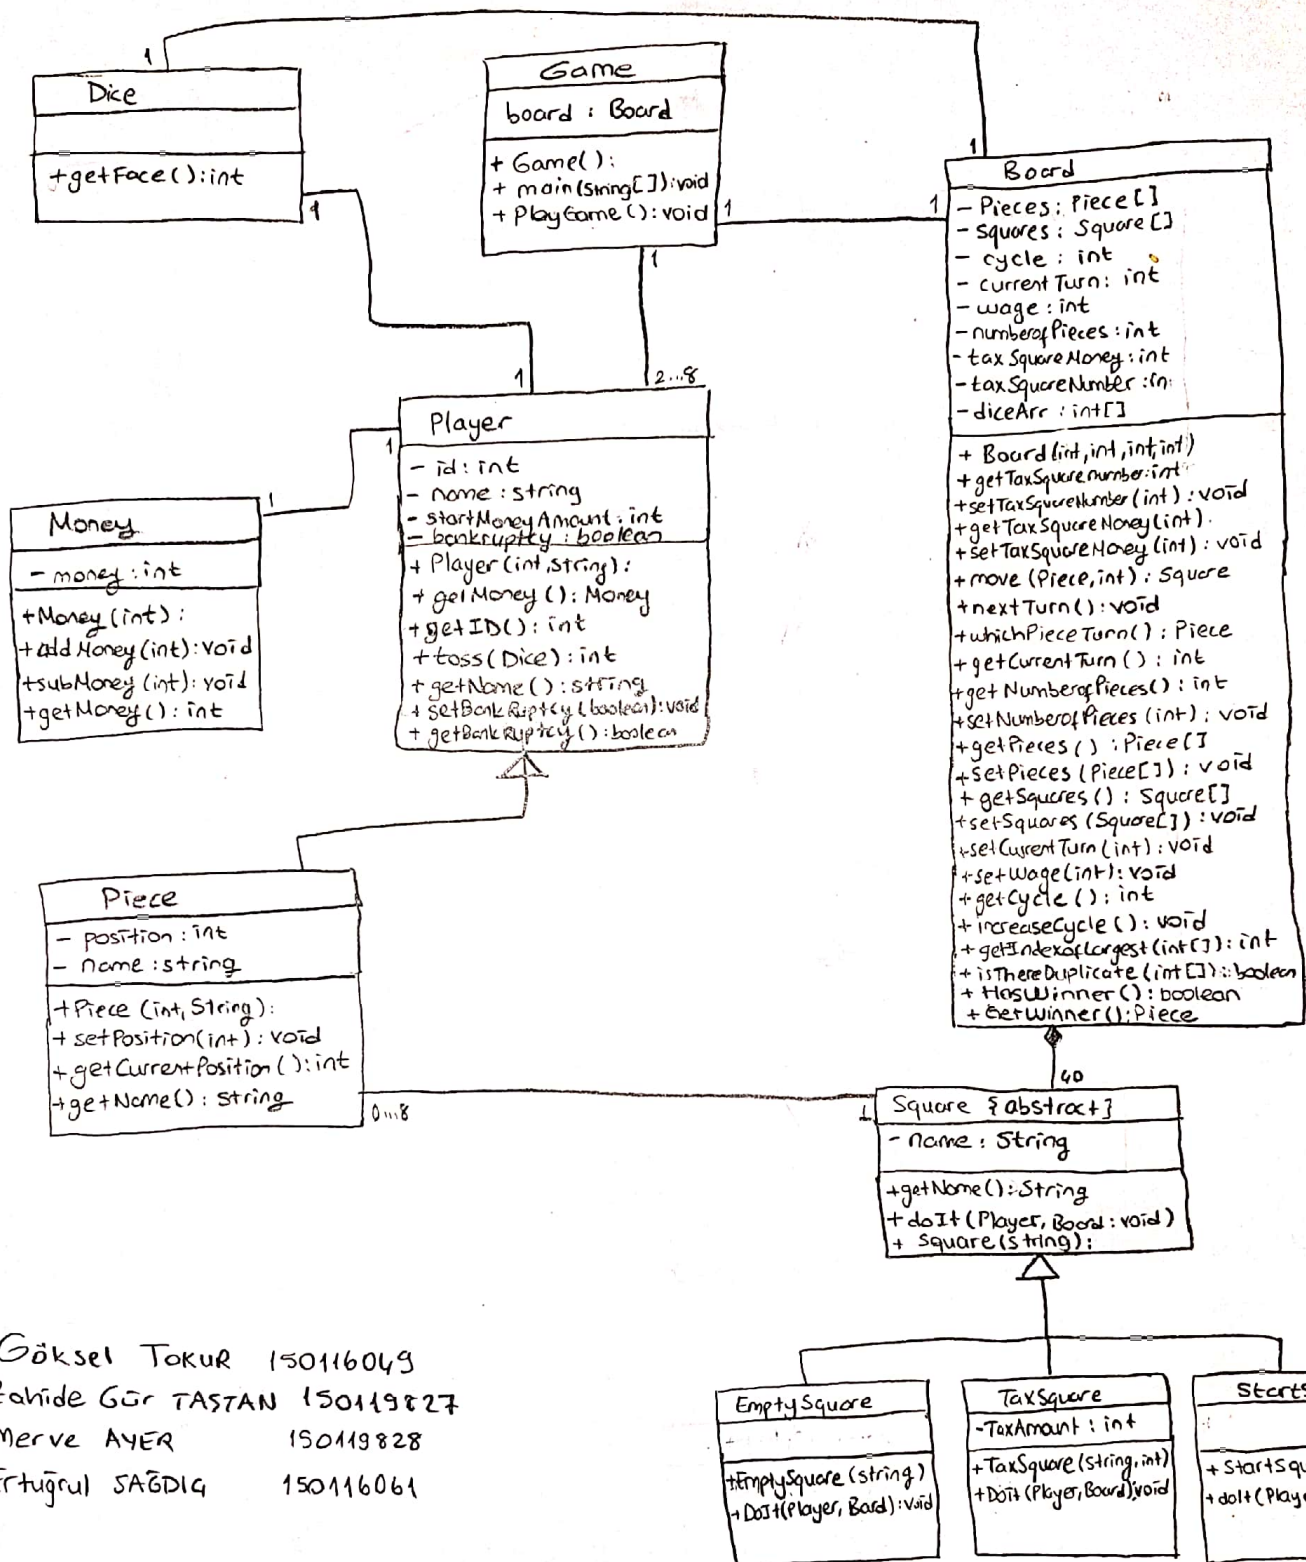 1
Dice
+getFace():int
1
Game
board : Board
+ Game():
+ main(String[]):void
+ PlayGame():void
1
1
1
1
Board
- Pieces: Piece[]
- squares: Square[]
- cycle: int
- currentTurn: int
- wage: int
- numberofPieces: int
- taxSquareMoney: int
- taxSquareNumber :in
- diceArr : int[]
+ Board(int,int,int,int)
+ getTaxSquarenumber:int
+setTaxSquareNumber(int): void
+getTaxSquareMoney(int).
+setTaxSquareMoney(int): void
+move (Piece,int): Square
+nextTurn(): void
+whichPieceTurn(): Piece
+getCurrentTurn(): int
+getNumberofPieces(): int
+setNumberofPieces(int): void
+getPieces() : Piece[]
+setPieces (Piece[]): void
+ getSquares() : Square[]
+setSquares (Square[]): void
+setCurrentTurn(int): void
+setwage(int): void
+ getCycle(): int
+ increaseCycle(): void
+ getIndexofLargest(int[]): int
+ isThereDuplicate(int[]): boolean
+ HasWinner(): boolean
+ GetWinner():Piece
1
2...8
Player
- id: int
- name: string
- startMoneyAmount: int
- bankruptcy : boolean
+ Player(int,String):
+ getMoney(): Money
+ getID(): int
+ toss(Dice): int
+ getName(): string
+ setBankRuptcy(boolean):void
+ getBankRuptcy():boolean
1
1
Money
- money: int
+Money(int):
+addMoney(int):void
+subMoney(int): void
+getMoney(): int
Piece
- position: int
- name:string
+Piece (int,String):
+ setPosition(int): void
+ getCurrentPosition():int
+getName(): string
0...8
1
40
Square {abstract}
- name: String
+getName():String
+ doIt(Player, Board: void)
+ Square(string):
EmptySquare
+EmptySquare(string)
+DoIt(Player, Bard):void
TaxSquare
-TaxAmount : int
+TaxSquare(String,int)
+Doit(Player,Board):void
StartS
+ StartSqu
+ doIt(Playe
Göksel TOKUR 150116049
ahide Gür TAŞTAN 150119827
Merve AYER 150119828
rtuğrul SAĞDIÇ 150116061